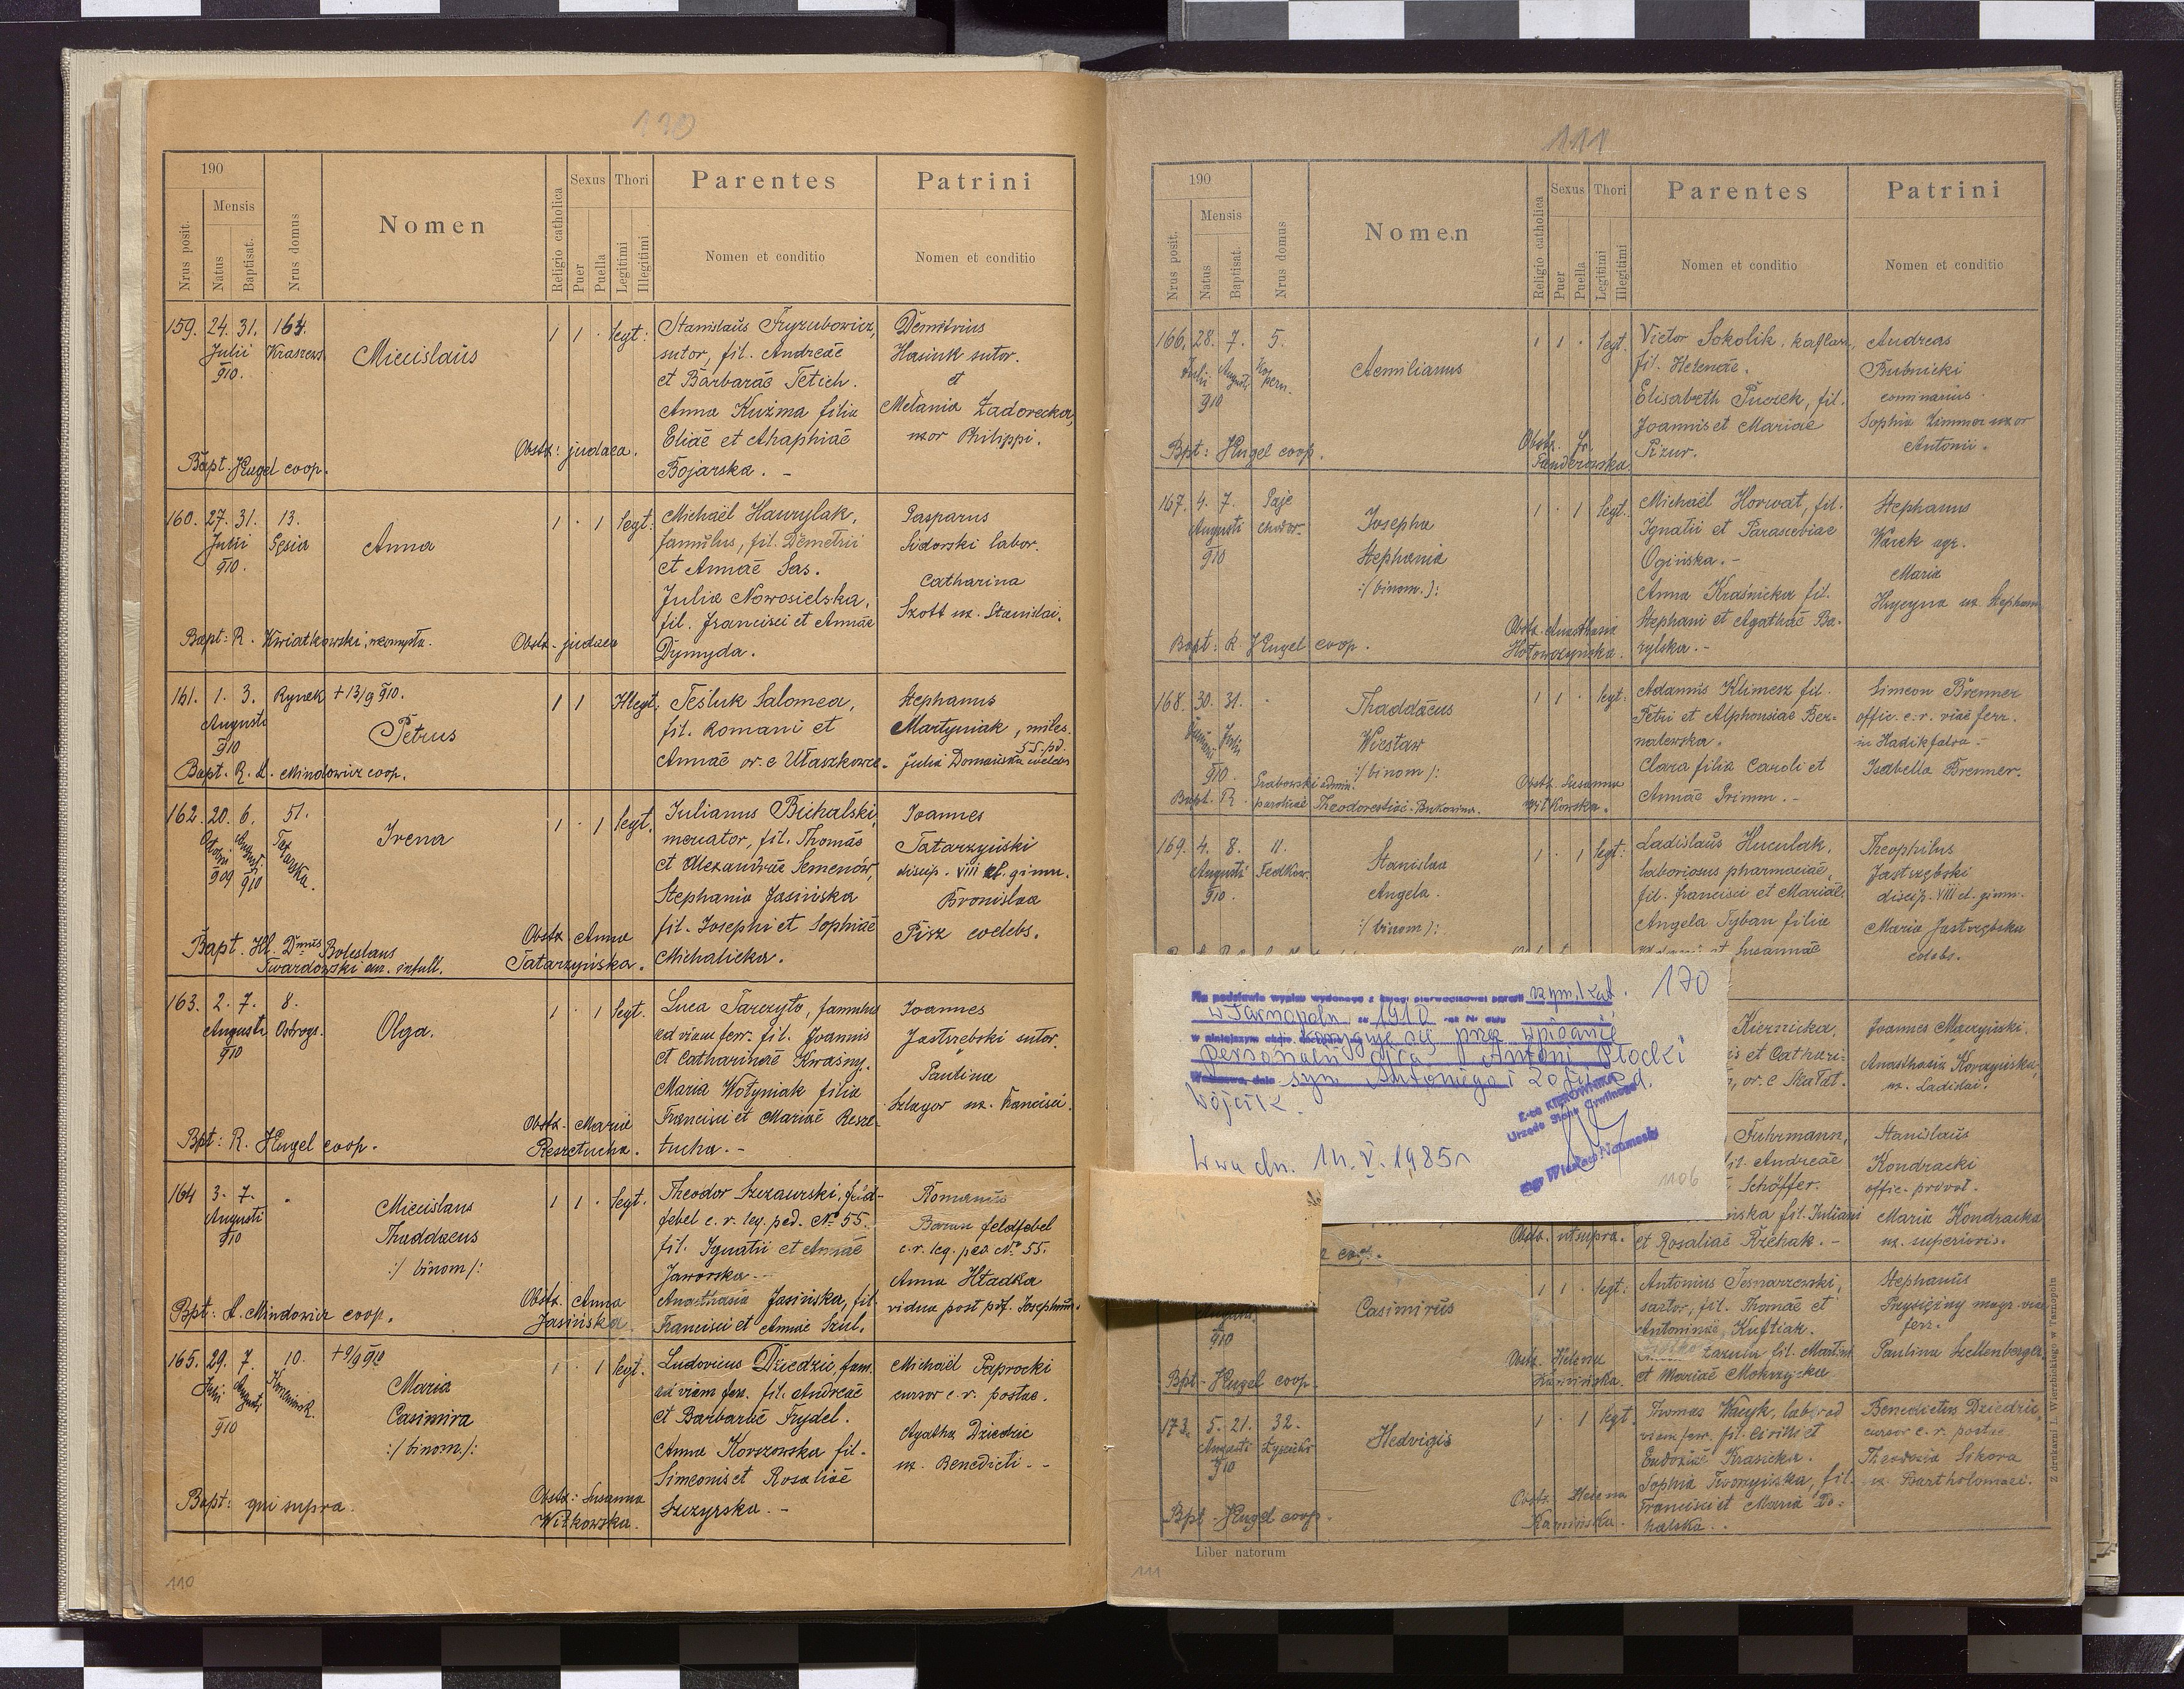 110
190
Nrus posit.
Mensis
Natus
Baptisat.
Nrus domus
Nomen
Religio catholica
Sexus
Puer
Puella
Thori
Legitimi
Illegitimi
Parentes
Nomen et conditio
Patrini
Nomen et conditio
159. 24. 31. 164.
Julii Kraszews.
910.
Miecislaus
1 1 · legt:
Stanislaus Fryzubowicz,
sutor, fil. Andreae
et Barbarae Tetich.
Anna Kuźma filia
Eliae et Ahaphiae
Bojarska. -
Demitrius
Hasiuk sutor.
et
Melania Zadorecka,
uxor Philippi.
Obstr: judaea.
Bapt. Hugel coop.
160. 27. 31. 13.
Julii Gęsia
910.
Anna
1 · 1 legt:
Michaël Hawrylak,
famulus, fil. Demetrii
et Annae Sas.
Julia Nowosielska,
fil. Francisci et Annae
Dymyda.
Gasparus
Sidorski labor.
Catharina
Szott ux. Stanislai.
Bapt: R. Kwiatkowski, neomysta.
Obstr. judaea
161. 1. 3. Rynek +13/9 910.
Augusti
910
Petrus
1 1 Illegt:
Tesluk Salomea,
fil. Romani et
Annae or. e Ułaszkowce.
Stephanus
Martyniak, miles
55. pd.
Julia Domańska coelebs
Bapt. R. A. Mindowicz coop.
162. 20. 6. 51.
Octobri August. Tatarska.
909 910
Irena
1 · 1 legt.
Julianus Bichalski,
mercator, fil. Thomas
et Alexandrae Semenów,
Stephania Jasińska
fil. Josephi et Sophiae
Michalicka.
Joannes
Tatarzyński
discip. VIII cl. gimn.
Bronislaa
Pisz coelebs.
Obstr. Anna
Tatarzyńska.
Bapt. Ill. Dmus Boleslaus
Twardowski can. infull.
163. 2. 7. 8.
Augusti Ostrogs.
910
Olga.
1 · 1 legt.
Luca Tarczyło, famulus
ad viam ferr. fil. Joannis
et Catharinae Kwaśny.
Maria Wołyniak filia
Francisci et Mariae Reszetucha. -
Joannes
Jastrzebski sutor.
Paulina
Szlagor ux. Francisci.
Obstr. Maria
Reszetucha.
Bpt: R. Hugel coop.
164 3. 7.
Augusti
910
Miecislaus
Thaddaeus
:/ binom /:
1 1 · legt.
Theodor Szczaurski, feldfebel c. r. leg. ped. No 55.
fil. Ignatii et Annae
Jaworska -
Anasthasia Jasińska, fil.
Francisci et Annae Szul.
Romanus
Baran feldfebel
c.r. leg. ped. No 55.
Anna Hładka
vidua post pdf. Josephum.
Obstr. Anna
Jasińska.
Bpt: A. Mindowicz coop.
165. 29. 7. 10. +9/9 910
Julii Augusti
910
Maria
Casimira
:/ binom. /:
1 · 1 legt.
Ludovicus Dziedzic, fam.
ad viam ferr. fil. Andreae
et Barbarae Frydel.
Anna Korszowska fil.
Simeonis et Rosaliae
Szczyrska. -
Michaël Paprocki
cursor c.r. postae.
Agatha Dziedzic
ux. Benedicti. -
Obstr: Susanna
Witkowska.
Bapt: qui supra.
110
111
190
Nrus posit.
Mensis
Natus
Baptisat.
Nrus domus
Nomen
Religio catholica
Sexus
Puer
Puella
Thori
Legitimi
Illegitimi
Parentes
Nomen et conditio
Patrini
Nomen et conditio
166. 28. 7. 5.
Julii Augusti Kopern.
910
Aemilianus
1 1 · legt.
Victor Sokolik, kaflarz,
fil. Helenae.
Elisabeth Puczek, fil.
Joannis et Mariae
Pizur.
Andreas
Bubnicki
cominarius.
Sophia Zimmer uxor
Antonii.
Obstr. Fr.
Panderowska.
Bpt: Hugel coop.
167. 4. 7. Gaje
Augusti chodor.
910
Josepha
Stephania
:/ binom. /:
1 · 1 legt.
Michaël Horwat, fil.
Ignatii et Parasceviae
Ogińska. -
Anna Kraśnicka fil.
Stephani et Agathae Barylska. -
Stephanus
Warek agr.
Maria
Hrycyna ux. Stephani
Obstr. Anasthasia
Hołowczyńska.
Bapt: R. Hugel coop.
168. 30. 31. ·
Julii
910.
Thaddaeus
Wiesław
:/ binom /:
1 1 · legt:
Adamus Klimesz fil.
Petri et Alphonsiae Bernalewska.
Clara filia Caroli et
Annae Grimm. -
Simeon Brenner
offic. c. r. viae ferr.
in Hadikfalva. -
Isabella Brenner.
Obstr. Susanna
Witkowska.
Bapt. R. Grabowski admin.
parochiae Theodorestiae - Bukowina.
169. 4. 8. 11.
Augusti Fedkow.
910.
Stanislaa
Angela.
:/ binom /:
1 · 1 legt:
Ladislaus Huculak,
laboriosus pharmaciae,
fil. Francisci et Mariae
Angela Cyban filia
et Susannae
Theophilus
Jastrzębski
discip. VIII cl. gimn.
Maria Jastrzębska
coelebs.
Na podstawie wypisu wydanego z księgi pierwopisowej parafii rzym. kat. 170
w Tarnopolu za 1910 rok Nr aktu
prostuje się przez wpisanie
personalii ojca Antoni Płocki
syn Antoniego i Zofii zd.
Wójcik.
W-wa dn. 14. V. 1985 r
Z-ca KIEROWNIKA
Urzędu Stanu Cywilnego
1106
Kiernicka,
et Cathari-
or. e Skałat.
Joannes Maczyński.
Anasthasia Korczyńska,
ux. Ladislai.
Fuhrmann,
fil. Andreae
Schöffer.
fil. Juliani
et Rosaliae Rzehak. -
Stanislaus
Kondracki
offic. privat.
Maria Kondracka
ux. superioris.
Obstr. ut supra.
coop.
910
Casimirus
1 1 · legt:
Antonius Tesnarzewski,
sartor, fil. Thomae et
Antoninae Kuftiak.
fil. Martini
et Mariae Mokrzycka
Stephanus
Przysiężny magr. viae
ferr.
Paulina Szellenberger
Obstr. Helena
Kamińska.
Bpt - Hugel coop.
173. 5. 21. 32.
Augusti
910
Hedvigis
1 · 1 legt.
Thomas Wacyk, labor. ad
viam ferr. fil. Cirilli et
Eudoxiae Krasicka.
Sophia Tworzyńska, fil.
Francisci et Maria Dohalska.
Benedictus Dziedzic,
cursor c. r. postae
Theodosia Sikora
ux. Bartholomaei.
Obstr: Helena
Kamińska.
Bpt - Hugel coop.
Liber natorum
Z drukarni L. Wierzbickiego w Tarnopolu
111